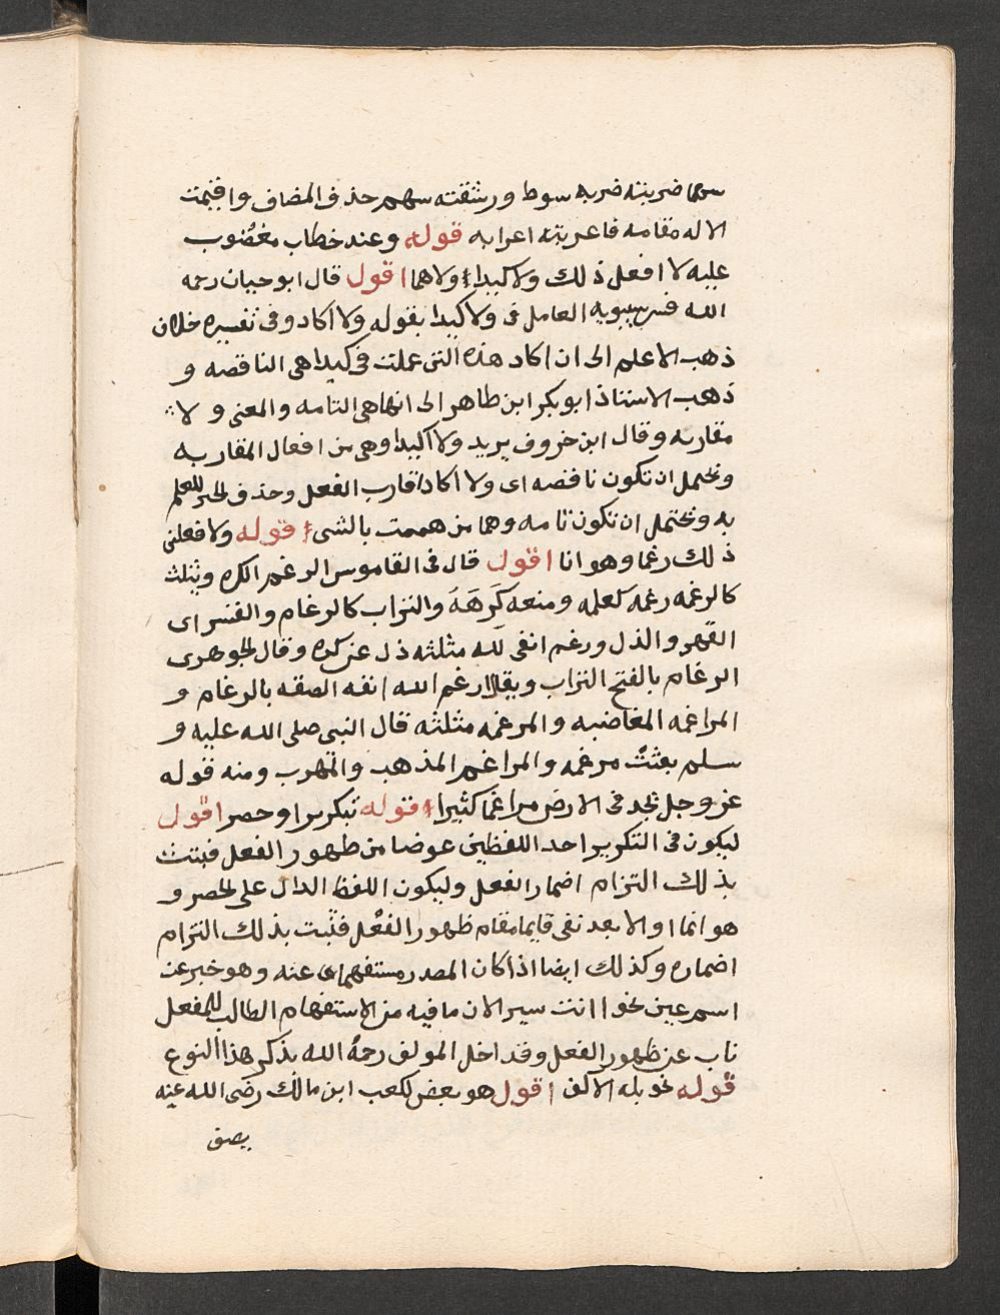 سهما ضربته ضربه سوط ورشقته سهم حذف المضاف واقيمت
الاله مقامه فاعربته اعرابه قوله وعند خطاب مغضوب
عليه لا افعل ذلك ولا كيدا ولا هما اقول قال ابو حيان رحمه
الله فسر سيبويه العامل في ولا كيدا بقوله ولا اكاد وفي تفسيره خلاف
ذهب الاعلم الى ان اكاد هذه التي عملت في كيدا هي الناقصه و
ذهب الاستاذ ابو بكر ابن طاهر الى انها هي التامه والمعنى و لا
مقاربه وقال ابن خروف يريد ولا اكيدا وهي من افعال المقاربه
وتحتمل ان تكون ناقصه اى ولا اكاد اقارب الفعل وحذف الخبر للعلم
به وتحتمل ان تكون تامه وهما من هممت بالشئ قوله ولا فعلن
ذلك رغما وهوانا اقول قال في القاموس الرغم الكره ويثلث
كالرغمه رغمه كعلمه ومنعه كَرَهَهَ والتراب كالرغام والقسر اى
القهر والذل ورغم انفى لله مثلثه ذل عن كره وقال الجوهرى
الرغام بالفتح التراب ويقال ارغم الله انفه الصقه بالرغام و
المراغمه المغاضبه والمرغمه مثلثه قال النبى صلى الله عليه و
سلم بعثت مرغمه والمراغم المذهب والمهرب ومنه قوله
عز وجل يجد في الارض مراغما كثيرا قوله تكريرا وحصر اقول
ليكون في التكرير احد اللفظين عوضا من ظهور الفعل فيثبت
بذلك التزام اضمار الفعل وليكون اللفظ الدال على الحصر و
هو انما او الا بعد نفى قايما مقام ظهور الفعل فثبت بذلك التزام
اضماره وكذلك ايضا اذا كان المصدر مستفهما عنه وهو خبر عن
اسم عين نحو اانت سيرا لان ما فيه من الاستفهام الطالب للفعل
ناب عن ظهور الفعل وقد اخل المولف رحمه الله بذكر هذا النوع
قوله نحو بله الاكف اقول هو بعض لكعب ابن مالك رضى الله عنه
يصف